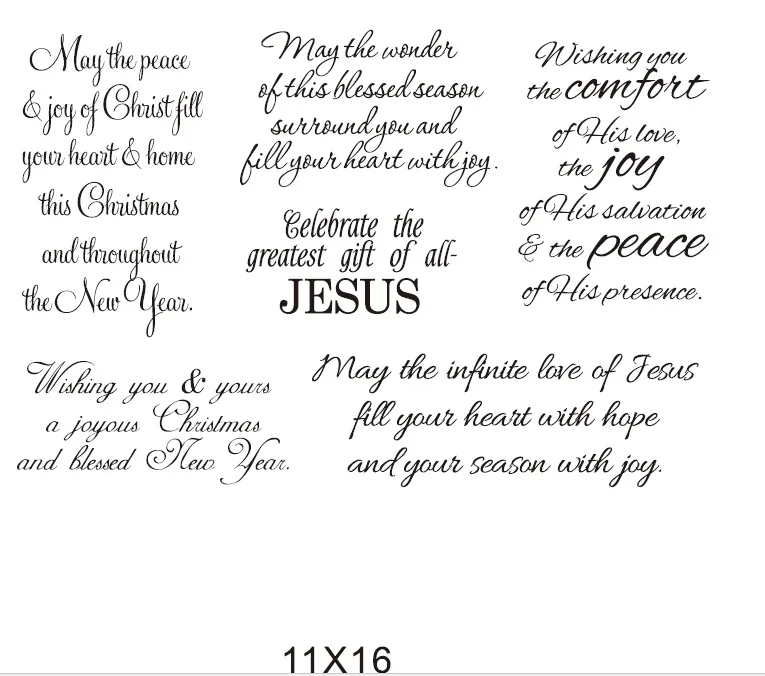 May the peace
& joy of Christ fill
your heart & home
this Christmas
and throughout
the New Year.
May the wonder
of this blessed season
surround you and
fill your heart with joy.
Celebrate the
greatest gift of all-
JESUS
Wishing you
the comfort
of His love,
the joy
of His salvation
& the peace
of His presence.
Wishing you & yours
a joyous Christmas
and blessed New Year.
May the infinite love of Jesus
fill your heart with hope
and your season with joy.
11X16